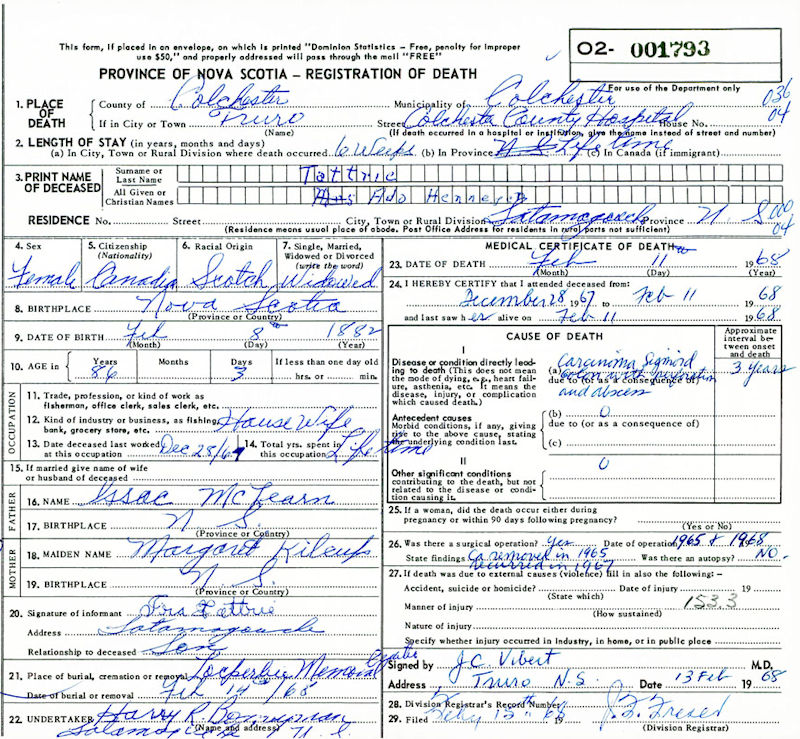 This form, if placed in an envelope, on which is printed "Dominion Statistics – Free, penalty for improper
use $50," and properly addressed will pass through the mail "FREE"
02- 001793
PROVINCE OF NOVA SCOTIA – REGISTRATION OF DEATH
For use of the Department only
1. PLACE OF DEATH County of Colchester Municipality of Colchester 036
If in City or Town Truro Street Colchester County Hospital House No. 04
(Name) (If death occurred in a hospital or institution, give the name instead of street and number)
2. LENGTH OF STAY (in years, months and days)
(a) In City, Town or Rural Division where death occurred 6 Weeks (b) In Province N S Life time (c) In Canada (if immigrant)
3. PRINT NAME OF DECEASED Surname or Last Name Tattrie
All Given or Christian Names Mrs Ada
RESIDENCE No. Street City, Town or Rural Division Tatamagouche Province N. S 000
(Residence means usual place of abode. Post Office Address for residents in rural parts not sufficient) 04
4. Sex 5. Citizenship (Nationality) 6. Racial Origin 7. Single, Married, Widowed or Divorced (write the word)
Female Canadia Scotch Widowed
8. BIRTHPLACE Nova Scotia
(Province or Country)
9. DATE OF BIRTH Feb 8th 1882
(Month) (Day) (Year)
10. AGE in Years Months Days If less than one day old
86 3 hrs. or min.
OCCUPATION
11. Trade, profession, or kind of work as
fisherman, office clerk, sales clerk, etc.
12. Kind of industry or business, as fishing, House Wife
bank, grocery store, etc.
13. Date deceased last worked at this occupation Dec 28/67 14. Total yrs. spent in this occupation Life time
15. If married give name of wife
or husband of deceased
FATHER
16. NAME Issac McLearn
17. BIRTHPLACE N S.
(Province or Country)
MOTHER
18. MAIDEN NAME Margaret
19. BIRTHPLACE N. S.
(Province or Country)
20. Signature of informant Tattrie
Address Tatamagouche
Relationship to deceased Son
21. Place of burial, cremation or removal Memorial
Date of burial or removal Feb 14/68
22. UNDERTAKER Harry R. Bonnyman
(Name and address)
Tatamagouche N. S
MEDICAL CERTIFICATE OF DEATH
23. DATE OF DEATH Feb 11 1968
(Month) (Day) (Year)
24. I HEREBY CERTIFY that I attended deceased from:
December 28 1967 to Feb 11 1968
and last saw her alive on Feb 11 1968
CAUSE OF DEATH
Approximate interval between onset and death
I
Disease or condition directly leading to death (This does not mean the mode of dying, e.g., heart failure, asthenia, etc. It means the disease, injury, or complication which caused death.)
(a) Carcinima Sigmoid colon with 3 years
due to (or as a consequence of)
and abscess
Antecedent causes
Morbid conditions, if any, giving rise to the above cause, stating the underlying condition last.
(b) 0
due to (or as a consequence of)
(c)
II
Other significant conditions
contributing to the death, but not related to the disease or condition causing it.
0
25. If a woman, did the death occur either during
pregnancy or within 90 days following pregnancy?
(Yes or No)
26. Was there a surgical operation? Yes Date of operation 1965 & 1968
State findings Ca removed in 1965 Was there an autopsy? NO.
recurred in 1967
27. If death was due to external causes (violence) fill in also the following:—
Accident, suicide or homicide? Date of injury 19
(State which)
Manner of injury 153.3
(How sustained)
Nature of injury
Specify whether injury occurred in industry, in home, or in public place
Signed by J.C. Vibert M.D.
Address Truro N.S. Date 13 Feb 1968
28. Division Registrar's Record Number
29. Filed Feby 15th 68 19 J. F. Fraser
(Division Registrar)